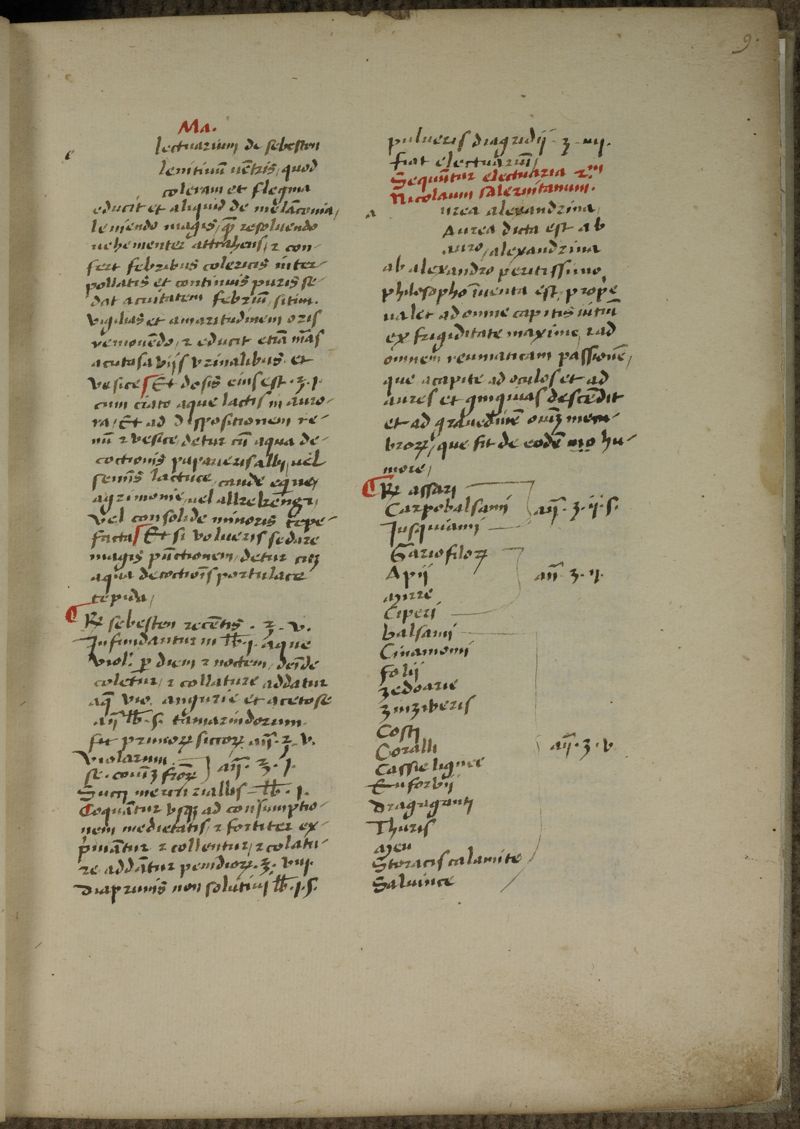 9.
Ma.
e
lectuarium de sebesten
lenitiuū uētris, quod
coleram et flegma
educit et aliquid de melāconia,
leniendo magis, quā resoluendo
uehementer attrahens, ⁊ con-
fert febribus colericis inter-
pollatis et continuis puris se-
dat acuitatem febriū, sitim.
vigilias et amaritudinem oris
remouēdo, ⁊ educit etiā mās
acutas a viis vrinalibus et
vesice Et dosis eius est . ʒ . j.
cum ciato aque lactis in auro-
ra, Et ad dispositionem re-
nū ⁊ vesice detur cū aqua de-
coctionis papaueris albi, uel
seminis lactuce, caude eque,
agrimonie, uel alkekengi,
vel consolide minoris tepe-
facta Et si volueris sedare
magis pūctionem, detur cū
aqua decoctiōis portulace
tepida,
℞ sebesten recētis . ʒ . v.
Infundantur in lb. j. aque
viol. p̄ diem ⁊ noctem, deīde
coletur, ⁊ collature addatur
aq̄ vio. angurie et acetose
aā lb. s. tamarindorum.
fit prunoꝝ siccoꝝ aā. ʒ. v.
Violarum
se. cōmuniū frigoꝝ aā. ʒ. j.
Succi mercurialis lb. j.
Coquātur vsqꝫ ad consumptio-
nem medietatis, ⁊ fortiter ex-
primātur ⁊ collentur, ⁊ colatu-
re addātur penidioꝝ. ʒ. viij.
diaprunis non solutiui lb. j. s.
pulueris diagridij . ʒ . iij.
fiat electuariū,
Sequūtur electuaria ⁊m
Nicolaum Salernitanum.
a
urea alexandrina,
Aurea dicta est ab
auro, alexandrina
ab alexandro peritissimo
philosopho īuenta est, prope
ualet ad omne capitis uitiū
ex frigiditate maxime, ⁊ ad
omnem reumaticam passionē,
que a capite ad oculos et ad
aures et gingiuas descēdit
et ad grauedinē oīuꝫ mem-
broꝝ, que fit de eodē mo hu-
more,
℞ assari
Carpobalsami aā. ʒ. ij. s.
Jusquiami
Gariofiloꝝ
Apij aā. ʒ. ij.
Mirre
Ciperi
Balsami
Cinamomi
folij
zedoarie
zinziberis
Costi
Coralli aā. ʒ. v.
Cassie lignee
Euforbij
dragaganti
Thuris
Meu
Storacis calamite
Saluince